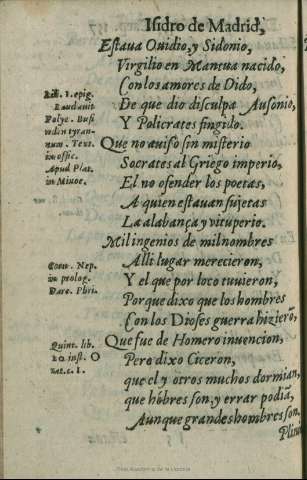 Isidro de Madrid,
Estaua Ouidio, y Sidonio,
Virgilio en Mantua nacido,
Con los amores de Dido,
De que dio disculpa Ausonio,
Y Policrates fingido.
Que no auiso sin misterio
Socrates al Griego imperio,
El no ofender los poetas,
A quien estauan sujetas
La alabança y vituperio.
Mil ingenios de mil nombres
Alli lugar merecieron,
Y el que por loco tuuieron,
Porque dixo que los hombres
Con los Dioses guerra hizierõ,
Que fue de Homero inuencion,
Pero dixo Ciceron,
que el y otros muchos dormian,
que hõbres son, y errar podiã,
Aunque grandes hombres son,
Plini
epig.
Laudauit
Polyc. Busi
ridin tyran-
num. Text.
in offic.
Apud Plat.
in Minoe.
Corn. Nep.
in prolog.
Dare. Phri.
Quint. lib.
10 inst. O
rat. c. 1.